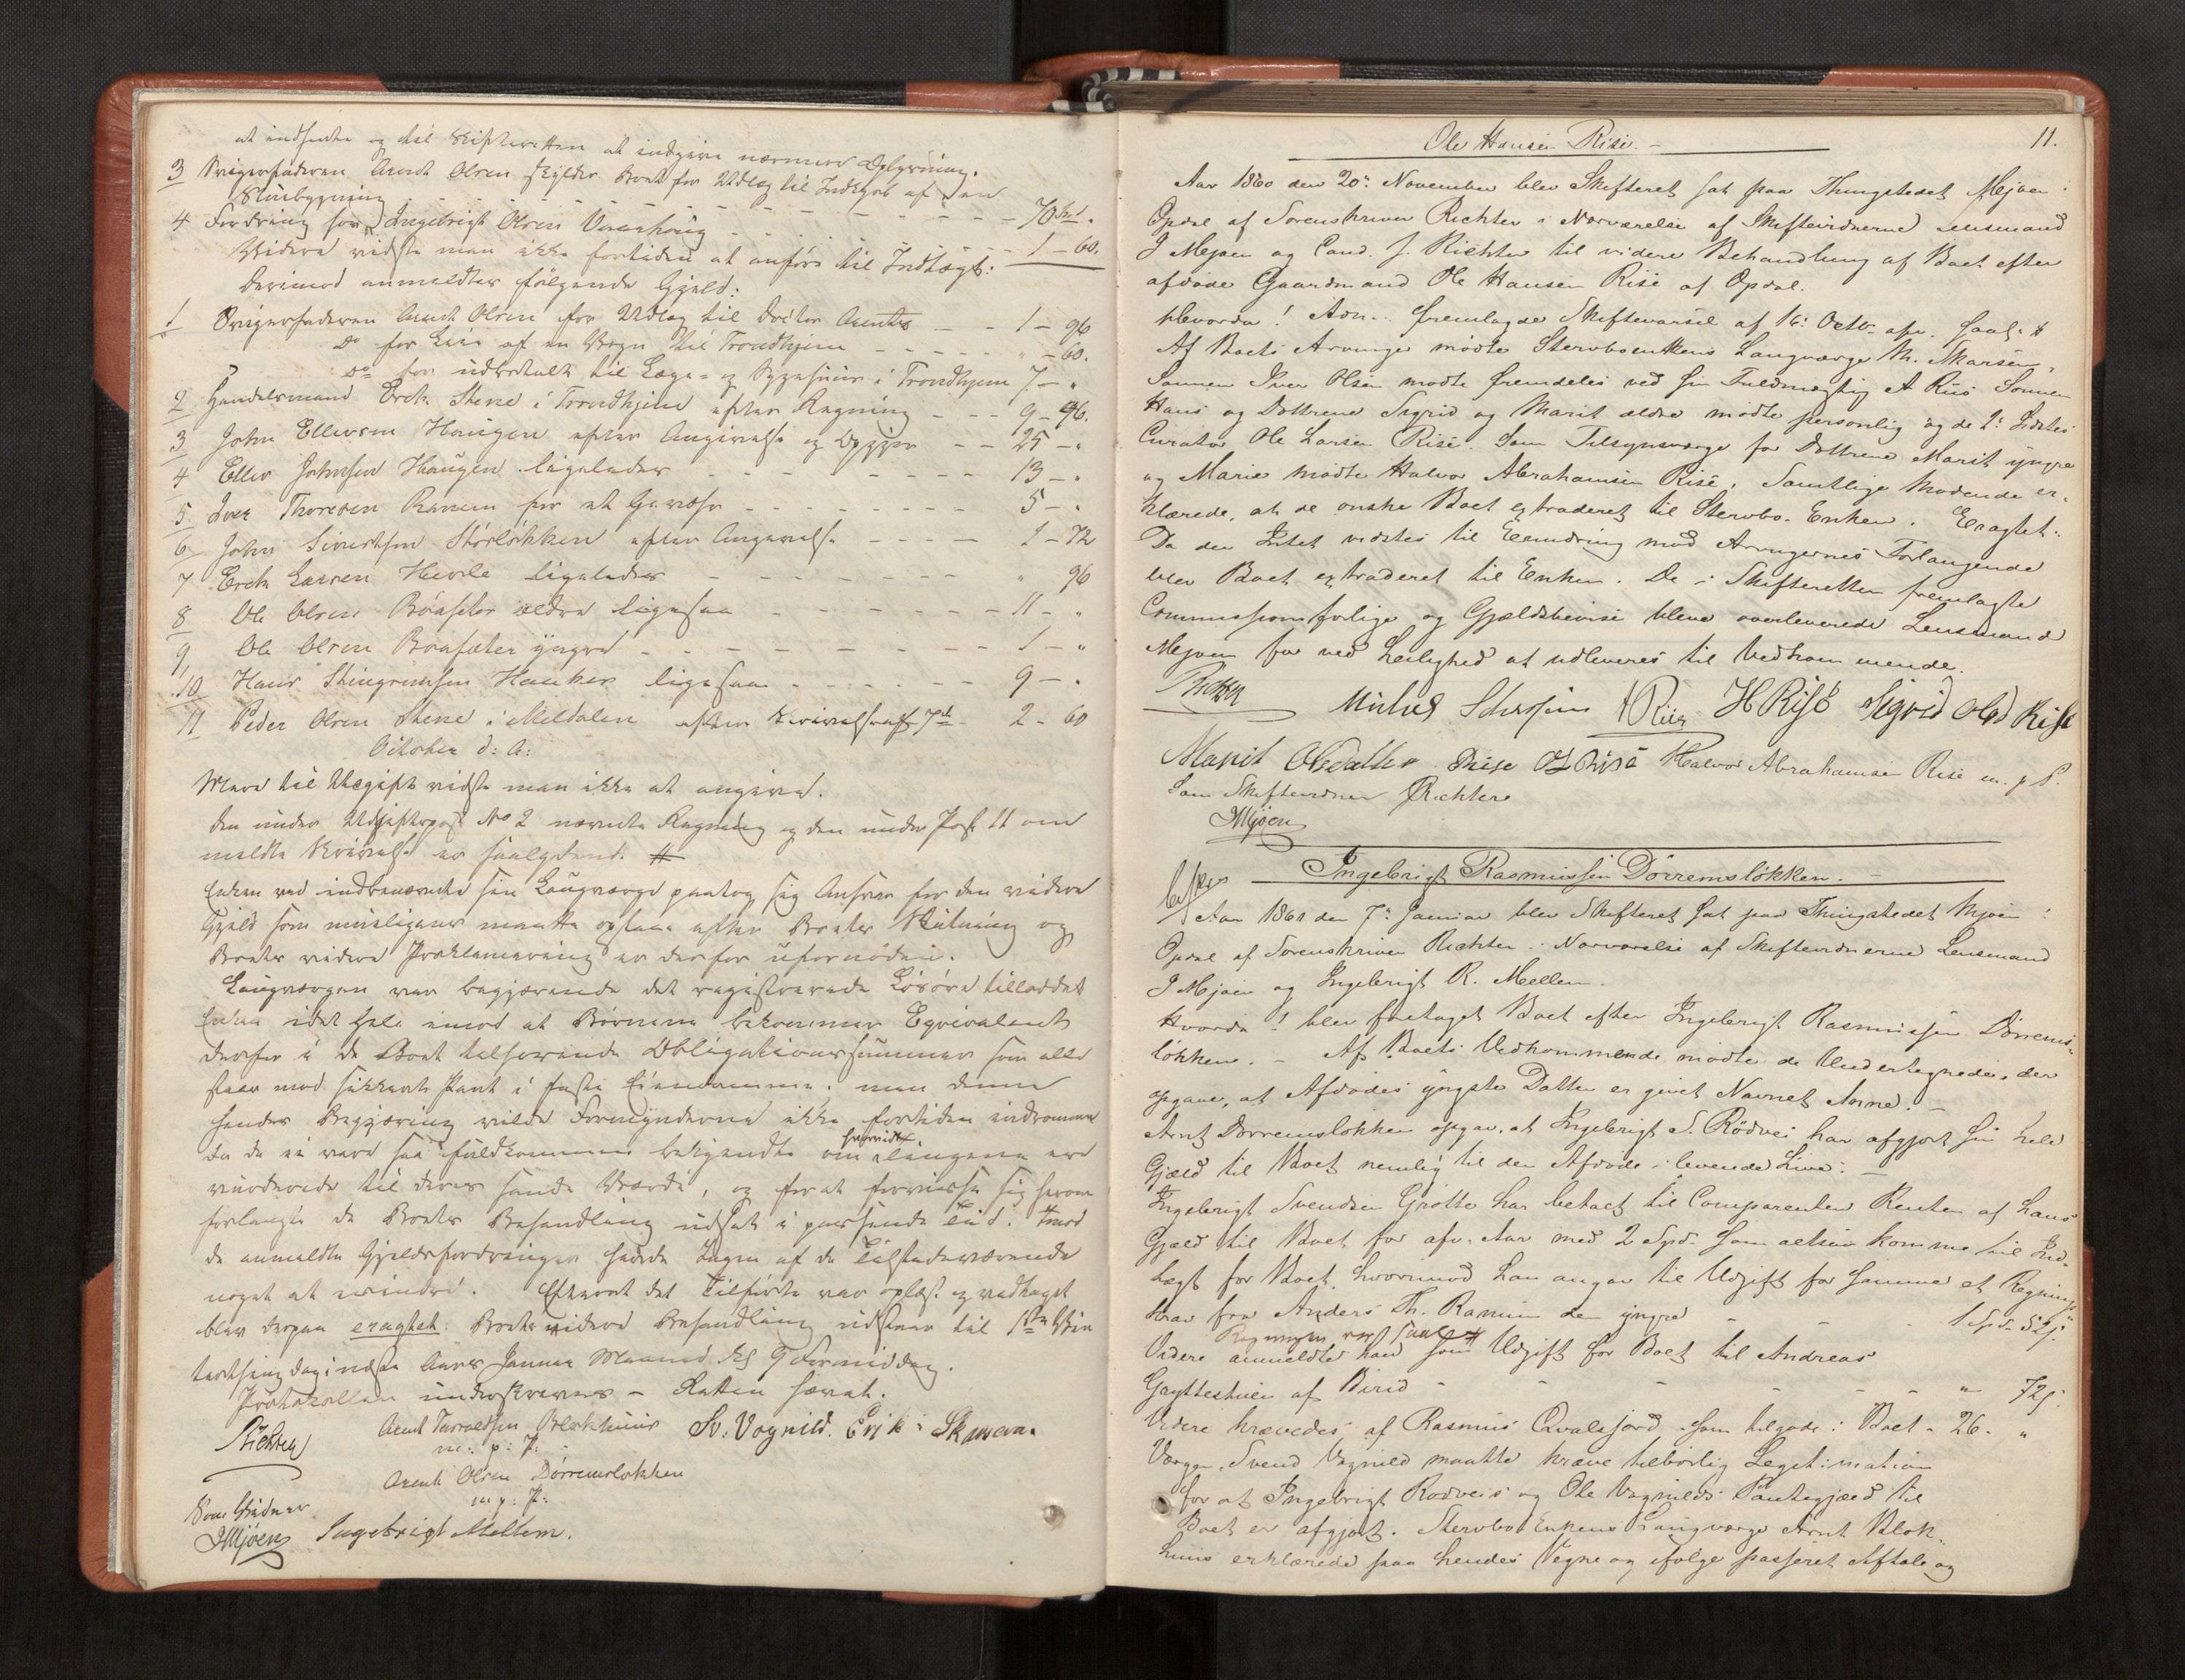 at indhente og til Skifteretten at indgive nærmere Oplysning.
3 Svigerfaderen Arent Olsen skylder Boet for Udlæg til Indkjøb af en
Stuebygning - - - - 70 Spd.
4 Fordring hos Ingebrigt Olsen Vaanhoug - - - 1 - 60.
Videre vidste man ikke fortiden at anføre til Indtægt:
derimod anmeldtes følgende Gjæld:
1 Svigerfaderen Arent Olsen for Udlæg til Doctor Arentz - - 1 - 96
Do for Leie af en Vogn til Trondhjem - - - " - 60.
Do for udbetalt til Læge- og Sygehuus i Trondhjem 7 - "
2 Handelsmand Erck. Stene i Trondhjem efter Regning - - - 9 - 96.
3 John Ellevsen Haugen efter Angivelse og - - 25 - "
4 Ellev Johnsen Haugen ligeledes - - - 13 - "
5 Iver Thoresen Ranem for et Gevær - - - 5 - "
6 John Sivertsen Störlökken efter Angivelse - - - 1 - 72
7 Erck Larsen Hevle ligeledes - - - " 96
8 Ole Olsen Bönseter ældre ligesaa - - - 11 - "
9 Ole Olsen Bönseter yngre - - - 1 - "
10 Hans Steingrimsen Hauker ligesaa - - - 9 - "
11 Peder Olsen Stene i Meldalen efter Skrivelse af 7de 2 - 60
October d: A:
Mere til Udgift vidste man ikke at angive.
Den under Udgiftspost No 2 nævnte Regning og den under Post 11 om
meldte Skrivelse er saalydende. #
Enken ved indbenævnte sin Laugværge paatog sig Ansvar for den videre
Gjæld som muligens maatte opstaae efter Boets Slutning og
Boets videre Proklamering er derfor ufornöden.
Laugværgen var begjærende det registrerede Lösöre tilloddet
Enken idet Hele imod at Börnene bekommer Eqvivalent
derfor i de Boet tilhörende Obligationssummer som alle
staar mod sikkert Pant i faste Eiendomme; men denne
hendes Begjæring vilde Formynderne ikke fortiden indrömme
da de ei vare saa fuldkommen bekjendte om hvorvidt Tingene ere
vurderede til deres sande Værdi, og for at forvisse sig herom
forlangte de Boets Behandling udsat i passende Tid. Imod
de anmeldte Gjeldsfordringer havde Ingen af de Tilstedeværende
noget at erindre. Efterat det Tilförte var oplæst og vedtaget
blev derpaa eragtet: Boets videre Behandling udstaar til 1ste Vin
terthingdag i næste Aars Januar Maaned Kl 9 Formiddag.
Protokollen underskreves - Retten hævet.
Richter Arent Blokhuus Sv. Vognild. Erik Skamern.
m: p: P:
Arent Olsen Dörremslökken
m: p: P:
Som Vidner
JMjöen Ingebrigt Mellem.
11.
Ole Hansen Rise. -
Aar 1860 den 20de November blev Skifteret sat paa Thingstedet Mjøen i
Opdal af Sorenskriver Richter i Nærværelse af Skiftevidnerne Lensmand
J Mjøen og Cand. J. Richter til videre Behandling af Boet efter
afdøde Gaardmand Ole Hansen Rise af Opdal.
Hvorda! Adm. fremlagde Skiftevarsel af 16: Octb. afv. saal: #
Af Boets Arvinger mødte Stervboenkens Laugværge M. Skarsem,
Sønnen Iver Olsen mødte fremdeles ved sin Fuldmægtig A Riis Sønnen
Hans og Døttrene Sigrid og Marit ældre mødte personlig og de 2: Sidstes
Curator Ole Larsen Rise. Som Tilsynsværge for Døttrene Marit yngre
og Marie mødte Halvor Abrahamsen Rise. Samtlige Mødende er-
klærede, at de ønske Boet extraderet til Stervbo-Enken. Eragtet:
Da der Intet vidstes til Erindring mod Arvingernes Forlangende
blev Boet extraderet til Enken. De i Skifteretten fremlagte
Commissionsforlige og Gjældsbevise bleve overleverede Lensmand
Mjøen for ved Leilighed at udleveres til Vedkommende.
Richter ARiis H Rise Sigrid Olsd Rise
Marit Olsdatter Rise OLRise Halvor Abrahamsen Rise m. p P.
Som Skiftevidner JRichter
JMjøen
Ingebrigt Rasmussen Dörremslökken. -
Aar 1861 den 7de Januar blev Skifteret sat paa Thingstedet Mjøen i
Opdal af Sorenskriver Richter i Nærværelse af Skiftevidnerne Lensmand
J Mjøen og Ingebrigt R. Mellem.
Hvorda! blev foretaget Boet efter Ingebrigt Rasmussen Dörrems-
lökken. - Af Boets Vedkommende mødte de Undertegnede, der
opgave, at Afdødes yngste Datter er givet Navnet Anne. -
Arnt Dorremslökken opgav, at Ingebrigt S. Rödvei har afgjort sin hele
Gjæld til Boet nemlig til den Afdøde i levende Live: -
Ingebrigt Svendsen Grötte har betalt til Comparenten Renten af hans
Gjæld til Boet for afv. Aar med 2 Spd. som altsaa komme til Ind-
tægt for Boet, hvorimod han angav til Udgift for samme et Regnings
krav fra Anders Th. Ranum den yngre - - - 1 Spd. 52 s.
Regningen var saal #
Videre anmeldte han som Udgift for Boet til Andreas
Gryttestuen af Birid - - - - " 72 s.
Videre krævedes af Rasmus Qvalsjord som tilgode i Boet - 26 - "
Værgen, Svend Vognild maatte kræve tilbørlig Legitimation
for at Ingebrigt Rödveis og Ole Vognilds Pantegjæld til
Boet er afgjort. Stervbo Enkens Laugværge Arnt Blok-
huus erklærede paa hendes Vegne og ifølge passeret Aftale og